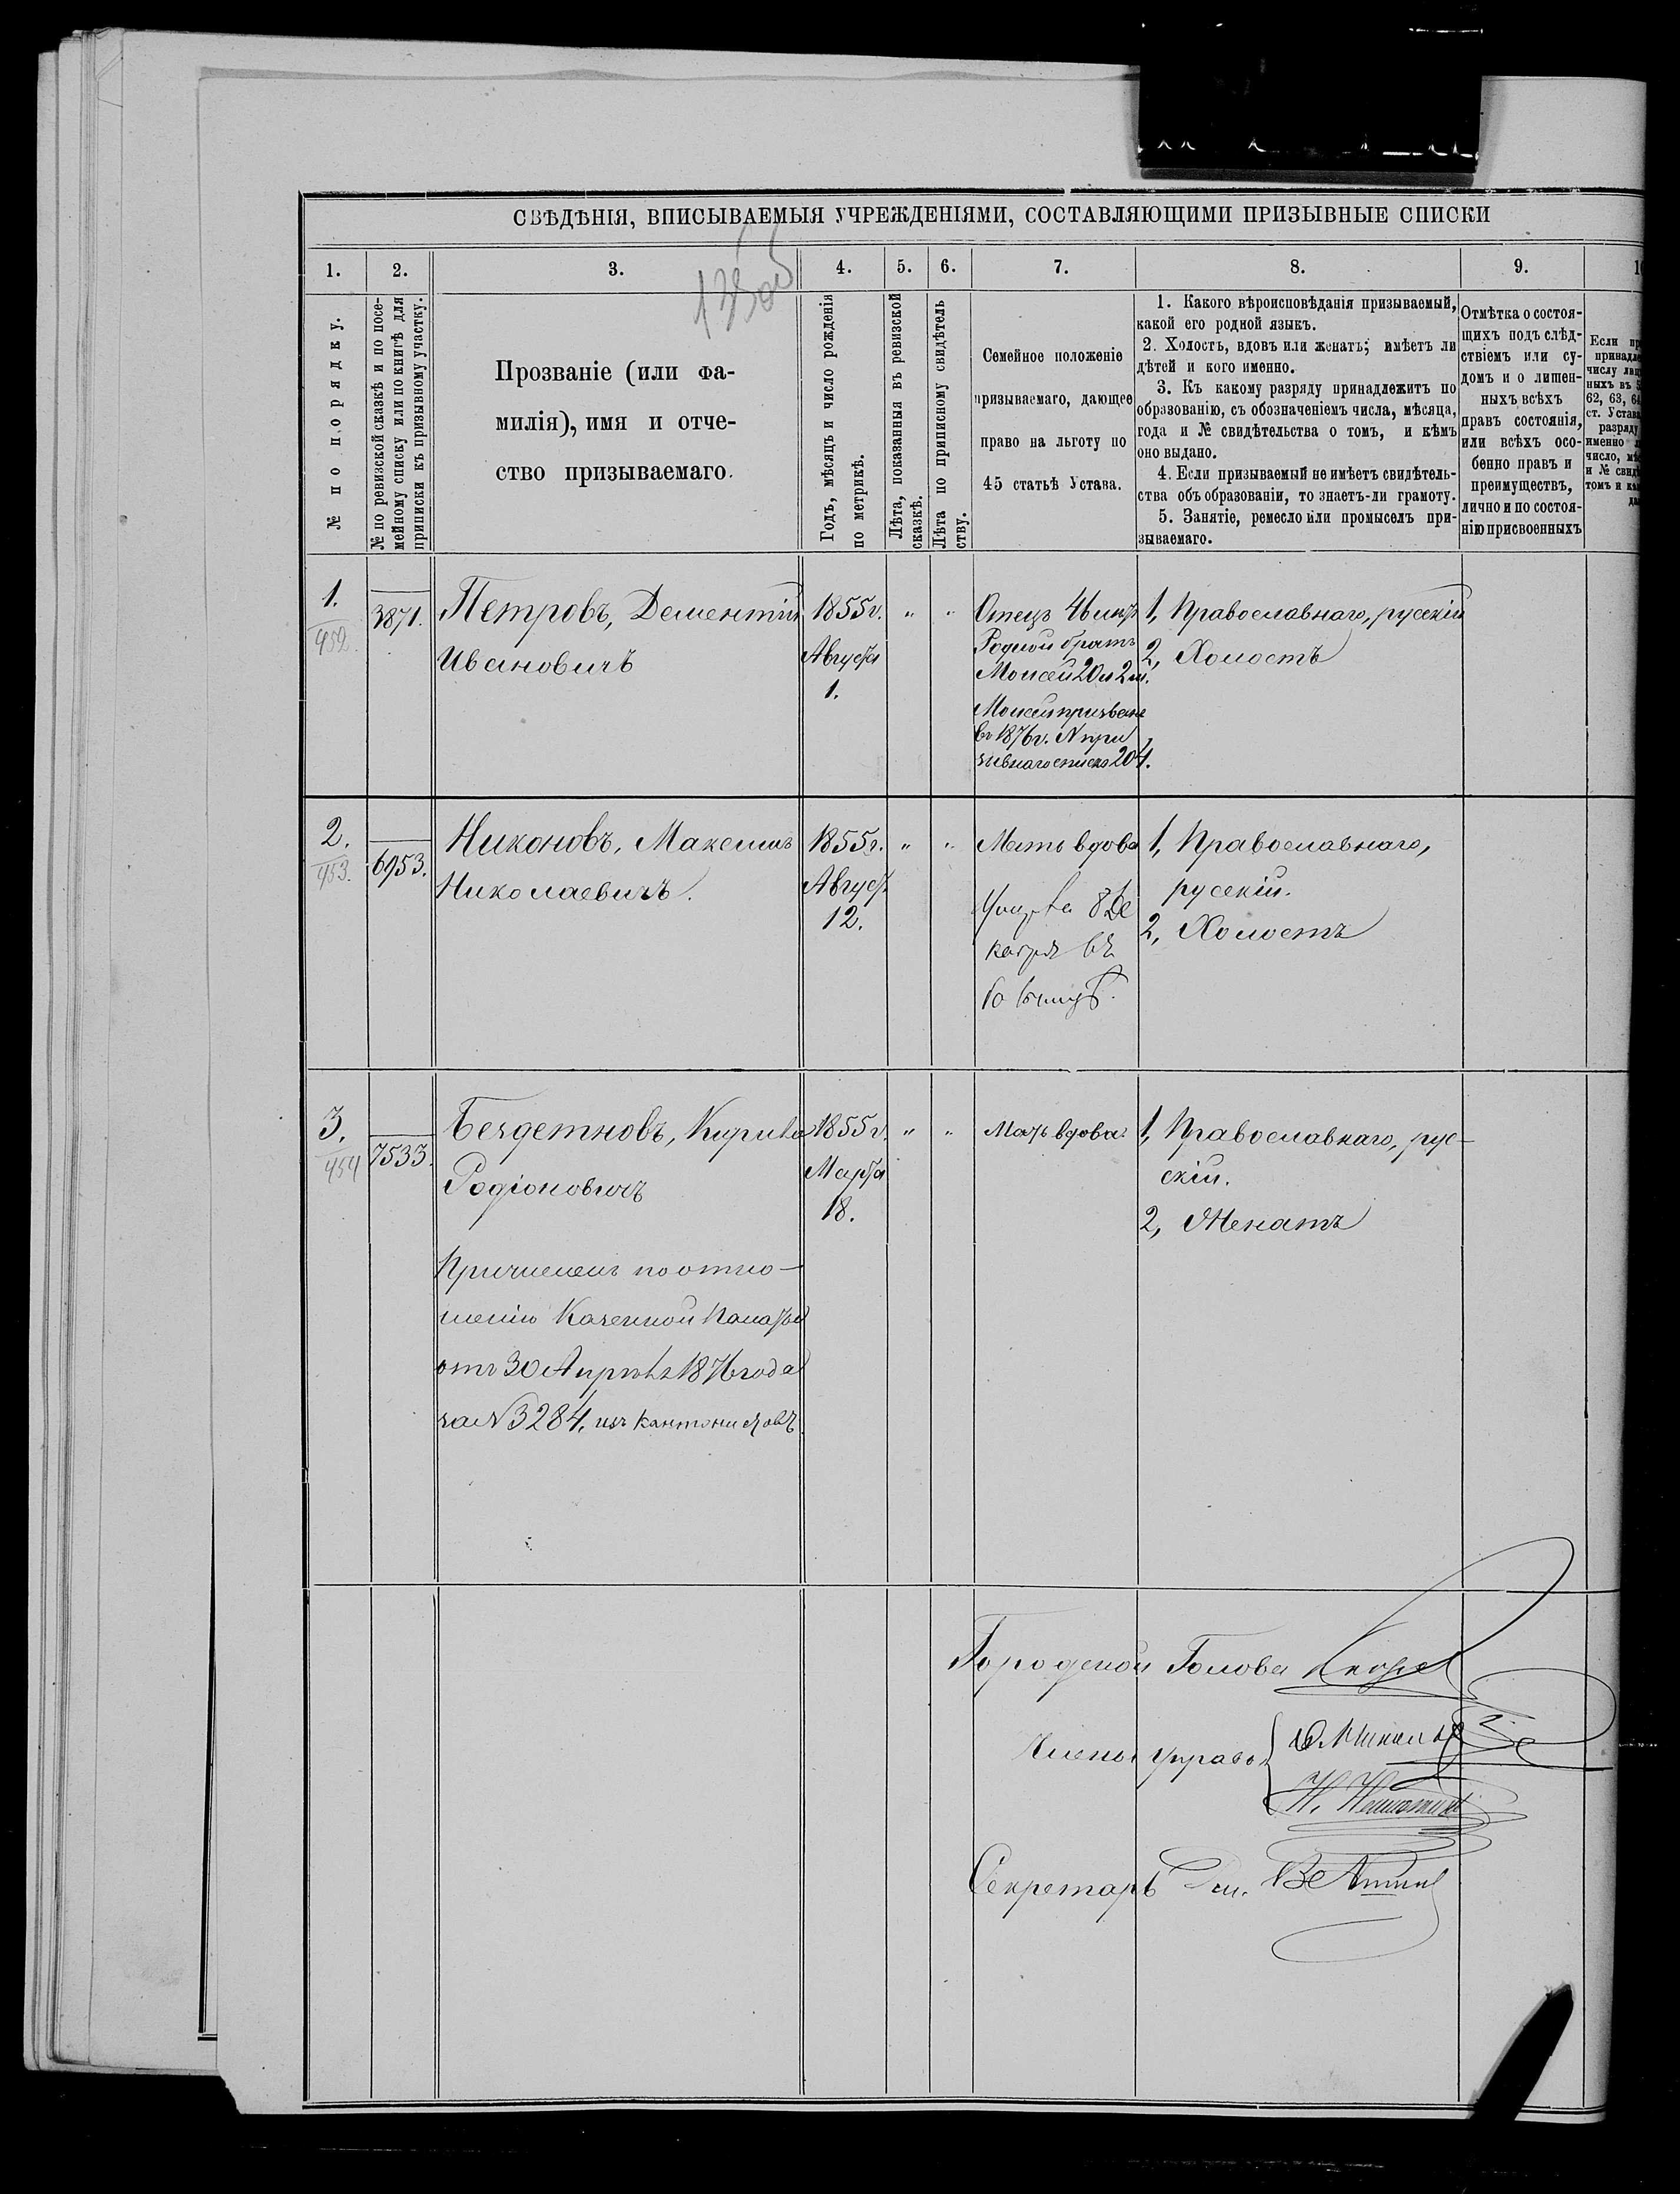 СВѢДѢНІЯ, ВПИСЫВАЕМЫЯ УЧРЕЖДЕНІЯМИ, СОСТАВЛЯЮЩИМИ ПРИЗЫВНЫЕ СПИСКИ
1.
2.
3.
4.
5.
6.
7.
8.
9.
№ по порядку.
№ по ревизской сказкѣ и по посе-
мейному списку или по книгѣ для
приписки къ призывному участку.
Прозваніе (или фа-
милія), имя и отче-
ство призываемаго.
Годъ, мѣсяцъ и число рожденія
по метрикѣ.
Лѣта, показанныя въ ревизской
сказкѣ.
Лѣта по приписному свидѣтель
ству.
Семейное положеніе
призываемаго, дающее
право на льготу по
45 статьѣ Устава.
1. Какого вѣроисповѣданія призываемый,
какой его родной языкъ.
2. Холостъ, вдовъ или женатъ; имѣетъ ли
дѣтей и кого именно.
3. Къ какому разряду принадлежитъ по
образованію, съ обозначеніемъ числа, мѣсяца,
года и № свидѣтельства о томъ, и кѣмъ
оно выдано.
4. Если призываемый не имѣетъ свидѣтель-
ства объ образованіи, то знаетъ-ли грамоту.
5. Занятіе, ремесло или промыселъ при-
зываемаго.
Отмѣтка о состоя-
щихъ подъ слѣд-
ствіемъ или су-
домъ и о лишен-
ныхъ всѣхъ
правъ состоянія,
или всѣхъ осо-
бенно правъ и
преимуществъ,
лично и по состоя-
нію присвоенныхъ
Если
62, 63,
ст. Устава
разряду
именно
число,
и №
томъ и
1.
452
3871.
Петровъ, Дементій
Ивановичъ
1855г.
Августа
1.
" "
Отецъ 46 лѣтъ
Родной братъ
Моисей 20 л 2 м.
Моисей призванъ
въ 1876 г. № при
зывнаго списка 204.
1, Православнаго, русскій
2, Холостъ
2.
453.
6953.
Никоновъ, Максимъ
Николаевичъ.
1855г.
Августа
12.
" "
Мать вдова
1, Православнаго,
русскій.
2, Холостъ
3.
454
7533.
Бездетновъ, Кирила
Родіоновичъ
Причисленъ по отно-
шенію Казенной Палаты
отъ 30 Апрѣля 1876 года
за № 3284, изъ кантонистовъ.
1855г.
Марта
18.
" "
Мать вдова.
1, Православнаго, рус-
скій.
2, Женатъ
Городской Голова
Члены Управы
Секретарь